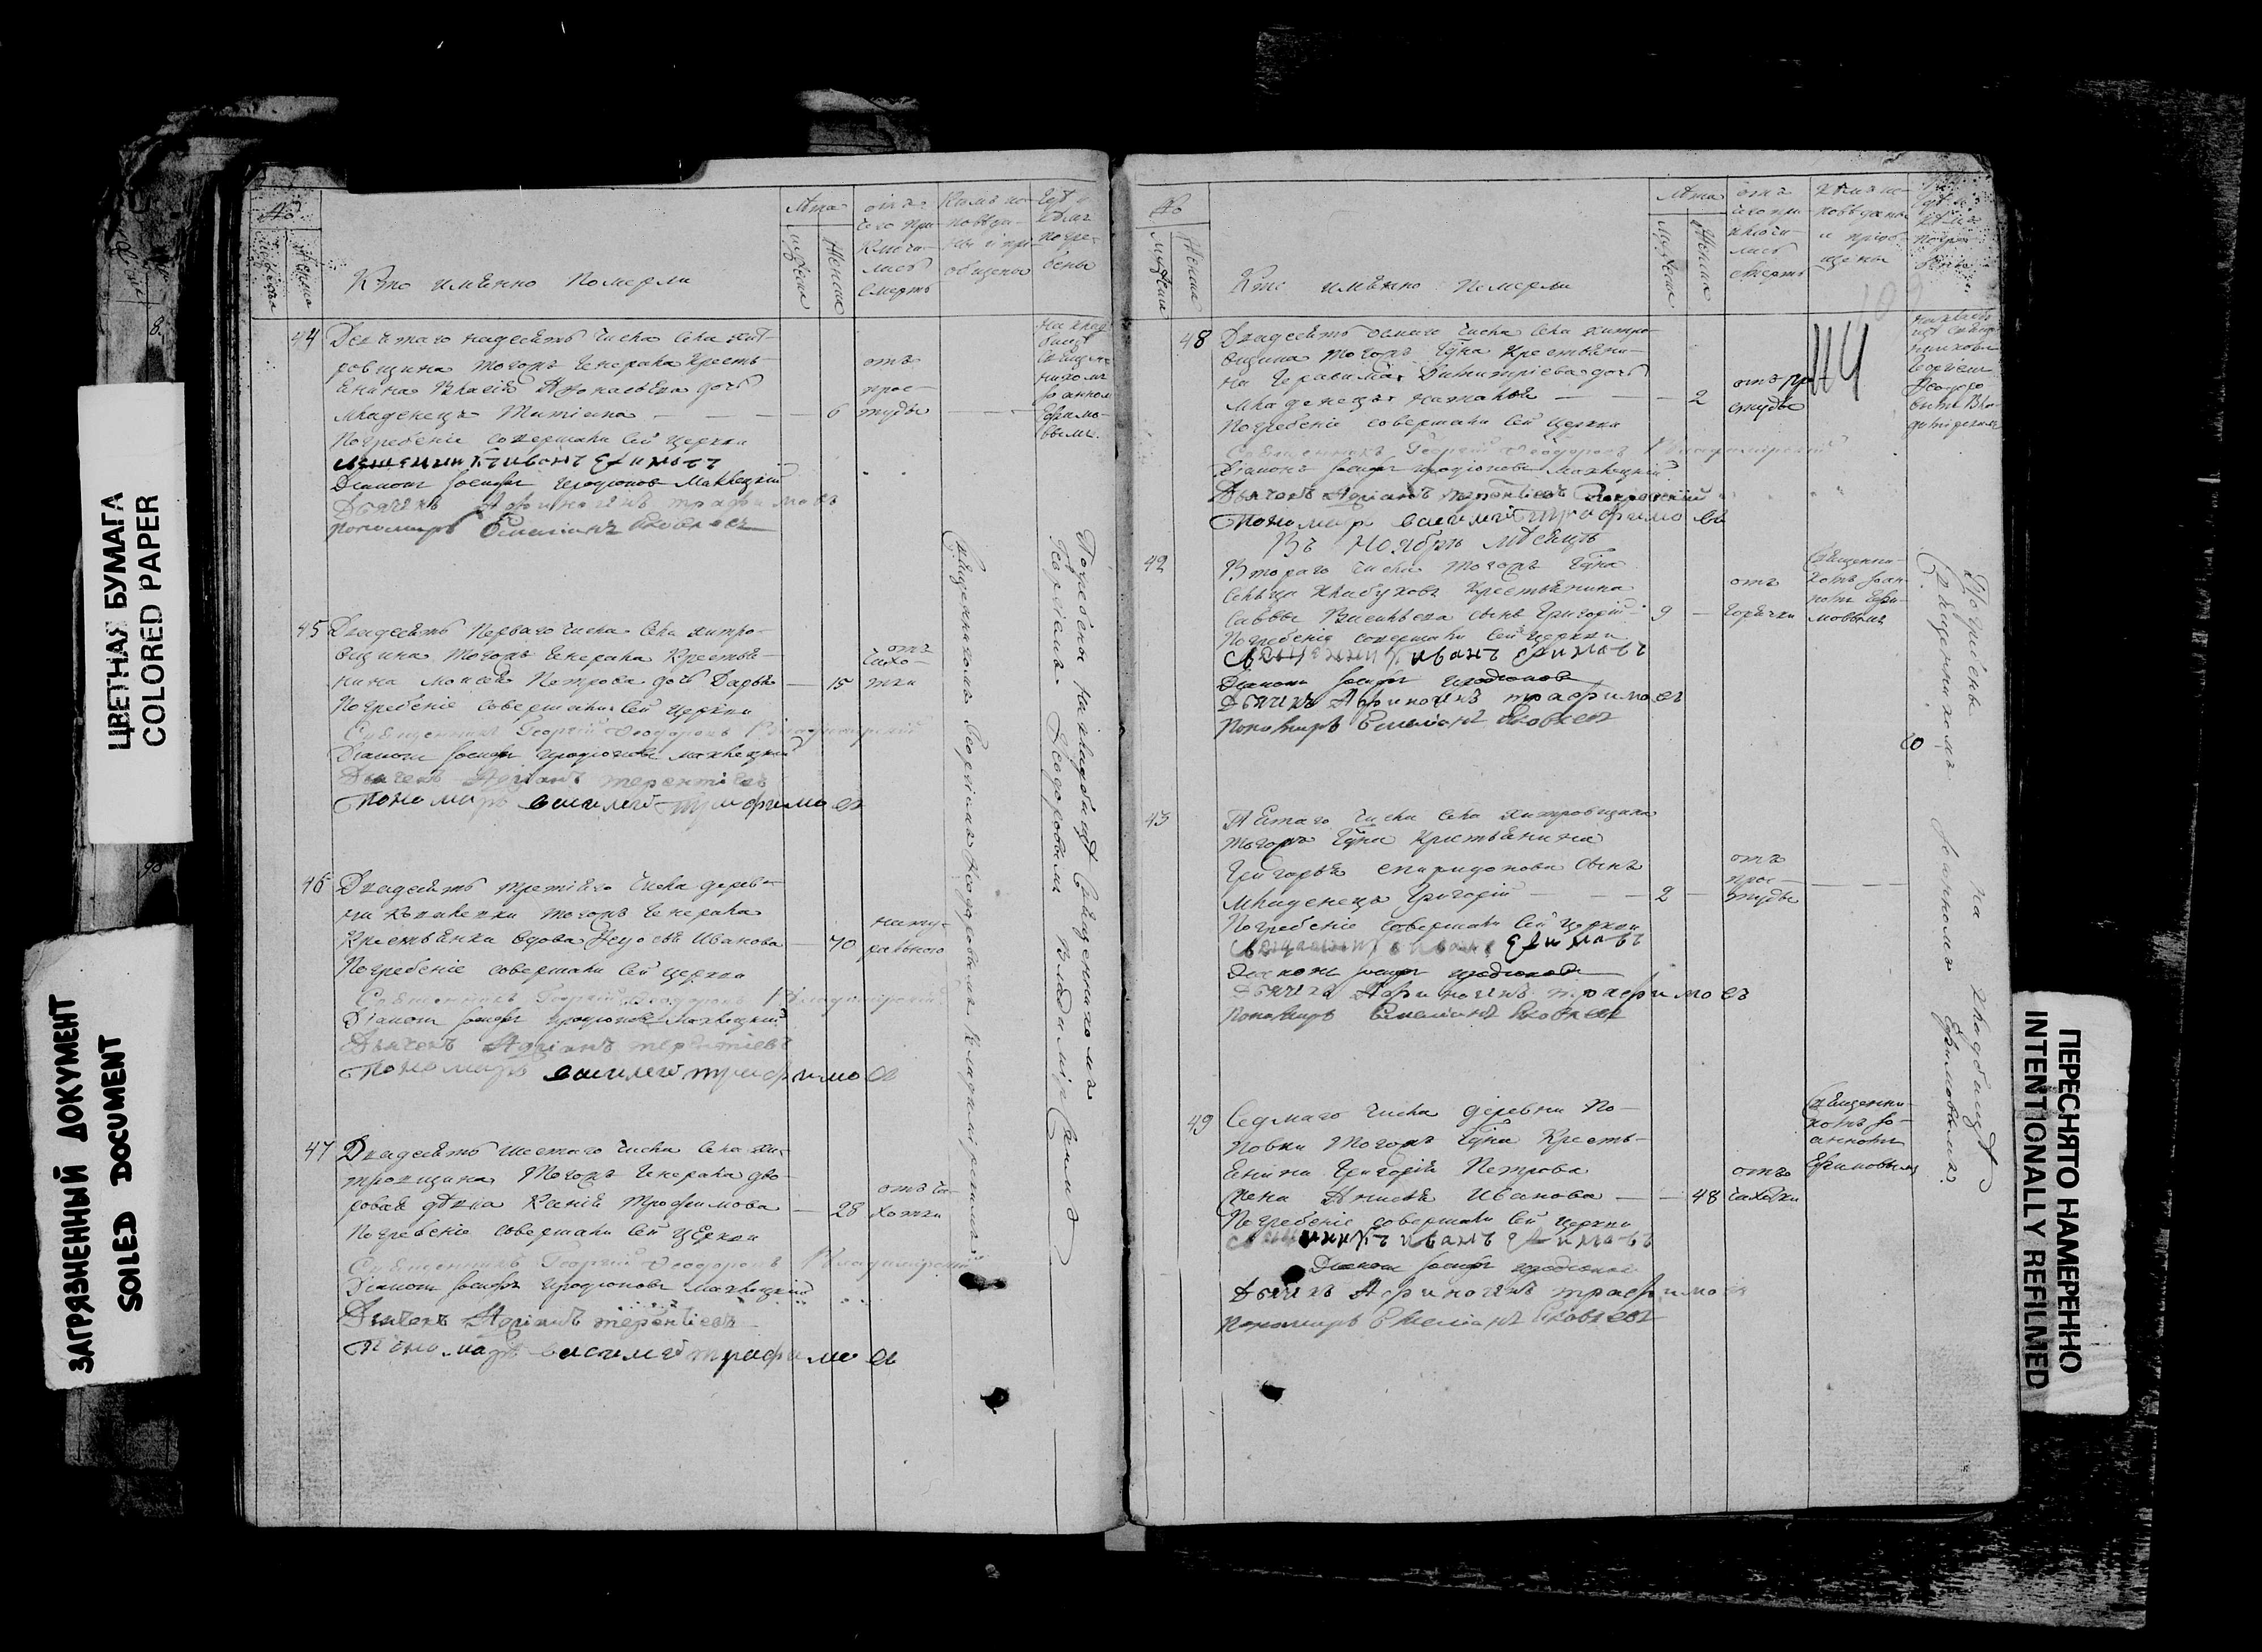 ЦВЕТНАЯ БУМАГА
COLORED PAPER
ЗАГРЯЗНЕННЫЙ ДОКУМЕНТ
SOILED DOCUMENT
№
Кто имѣнно померли
Лѣта
отъ
чего при-
ключи-
лась
смерть
44
Девятаго надесять числа села Хит-
ровщина тогожъ генерала кресть-
янина дочь
младенецъ Татіана — — — 6
отъ
прос-
туды
Погребеніе совершали сей церкви
священникъ иванъ Ефимовъ
Діаконъ Іосифъ Иродіоновъ
Дьячекъ Афиногенъ трафимовъ
пономарь Емеліанъ Яковлевъ
45
Двадесять перваго числа села Хитро-
вщина тогожъ генерала крестья-
нина Моисея Петрова дочь Дарья — 15
отъ
чахо-
тки
Погребеніе совершали сей церкви
Священникъ Георгій Ѳеодоровъ Владимірскій
Діаконъ Іосифъ Иродіоновъ
Дьячекъ Адріанъ терентіевъ
Пономарь василей трафимовъ
46
Двадесять третіяго числа дерев-
ни тогожъ генерала
крестьянка вдова Иванова — 70
нату-
ральною
Погребеніе совершали сей церкви
Священникъ Георгій Ѳеодоровъ Владимірскій
Діаконъ Іосифъ Иродіоновъ
Дьячекъ Адріанъ терентіевъ
Пономарь василей трафимовъ
47
Двадесять шестаго числа села Хи-
тровщина тогожъ генерала дво-
ровая дѣвка Ксенія Трофимова — 28
отъ ча-
хотки
Погребеніе совершали сей церкви
Священникъ Георгій Ѳеодоровъ Владимірскій
Діаконъ Іосифъ Иродіоновъ
Дьячекъ Адріанъ терентіевъ
Пономарь василей трафимовъ
Священникомъ Георгіемъ Ѳеодоровымъ Владимірскимъ
Погребены на кладбищѣ Священникомъ
Георгіемъ Ѳеодоровымъ Владимірскимъ
№
Кто имѣнно померли
Лѣта
отъ
чего при-
ключи-
лась
смерть
48
Двадесять осмаго числа села Хитро-
вщина тогожъ Г̃дна крестьяни-
на Герасима Димитріева дочь
младенецъ Наталья — — 2
отъ про-
студы
Погребеніе совершали сей церкви
Священникъ Георгій Ѳеодоровъ Владимірскій
Діаконъ Іосифъ Иродіоновъ
Дьячекъ Адріанъ терентіевъ
Пономарь василей трафимовъ
Въ Ноябрѣ мѣсяцѣ
42
Втораго числа тогожъ Г̃дна
сельца крестьянина
Саввы сынъ Григорій 9 —
отъ
горячки
Священни-
комъ Іоан-
номъ Ефи-
мовымъ
Погребеніе совершали сей церкви
священникъ иванъ Ефимовъ
Діаконъ Іосифъ Иродіоновъ
Дьячекъ Афиногенъ трафимовъ
пономарь Емеліанъ Яковлевъ
43
Пятаго числа села Хитровщина
тогожъ Г̃дна крестьянина
Григорья Спиридонова сынъ
младенецъ Григорій — — 2 —
отъ
прос-
туды
Погребеніе совершали сей церкви
священникъ иванъ Ефимовъ
Діаконъ Іосифъ Иродіоновъ
Дьячекъ Афиногенъ трафимовъ
пономарь Емеліанъ Яковлевъ
49
Седмаго числа деревни По-
повки тогожъ Г̃дна кресть-
янина Григорія Петрова
жена Анисья Иванова — — 48
отъ
чахотки
Священни-
комъ Іо-
анномъ
Ефимовымъ
Погребеніе совершали сей церкви
священникъ иванъ Ефимовъ
Діаконъ Іосифъ Иродіоновъ
Дьячекъ Афиногенъ трафимовъ
Пономарь Емеліанъ Яковлевъ
Погребены на кладбищѣ
Священникомъ Іоанномъ Ефимовымъ
ПЕРЕСНЯТО НАМЕРЕННО
INTENTIONALLY REFILMED